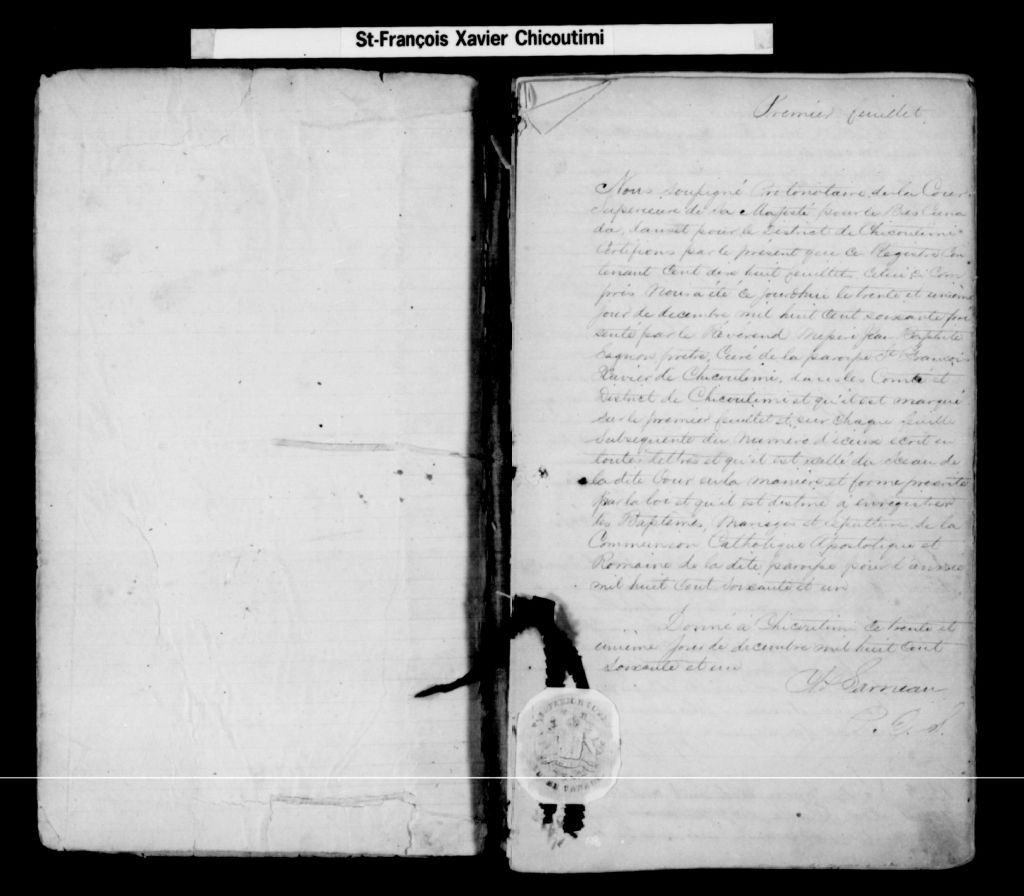 St-François Xavier Chicoutimi
Premier feuillet.
Nous soussigné Protonotaire de la Cour
Superieure de Sa Majesté pour le Bas Cana
da, dans et pour le District de Chicoutimi
Certifions par le présent que ce Registre Con
tenant Cent dix huit feuillets Celui ci Com
pris Nous a été ce jourdhui le trente et unième
jour de decembre mil huit Cent soixante pré
senté par le Révérend Messire Jean Baptiste
Gagnon prêtre, Curé de la paroisse St François
Xavier de Chicoutimi, dans les Comté et
District de Chicoutimi et qu'il est marqué
sur le premier feuillet et sur chaque feuille
Subsequente du Numéro d'iceux écrit en
toutes lettres et qu'il est scellé du sceau de
la dite Cour en la manière et forme
par la loi et qu'il est destiné à enregistrer
les Baptêmes, Mariages et sépultures de la
Communion Catholique Apostolique et
Romaine de la dite paroisse pour l'année
mil huit Cent Soixante et un
Donné à Chicoutimi Ce trente et
unième jour de decembre mil huit Cent
Soixante et un
Garneau